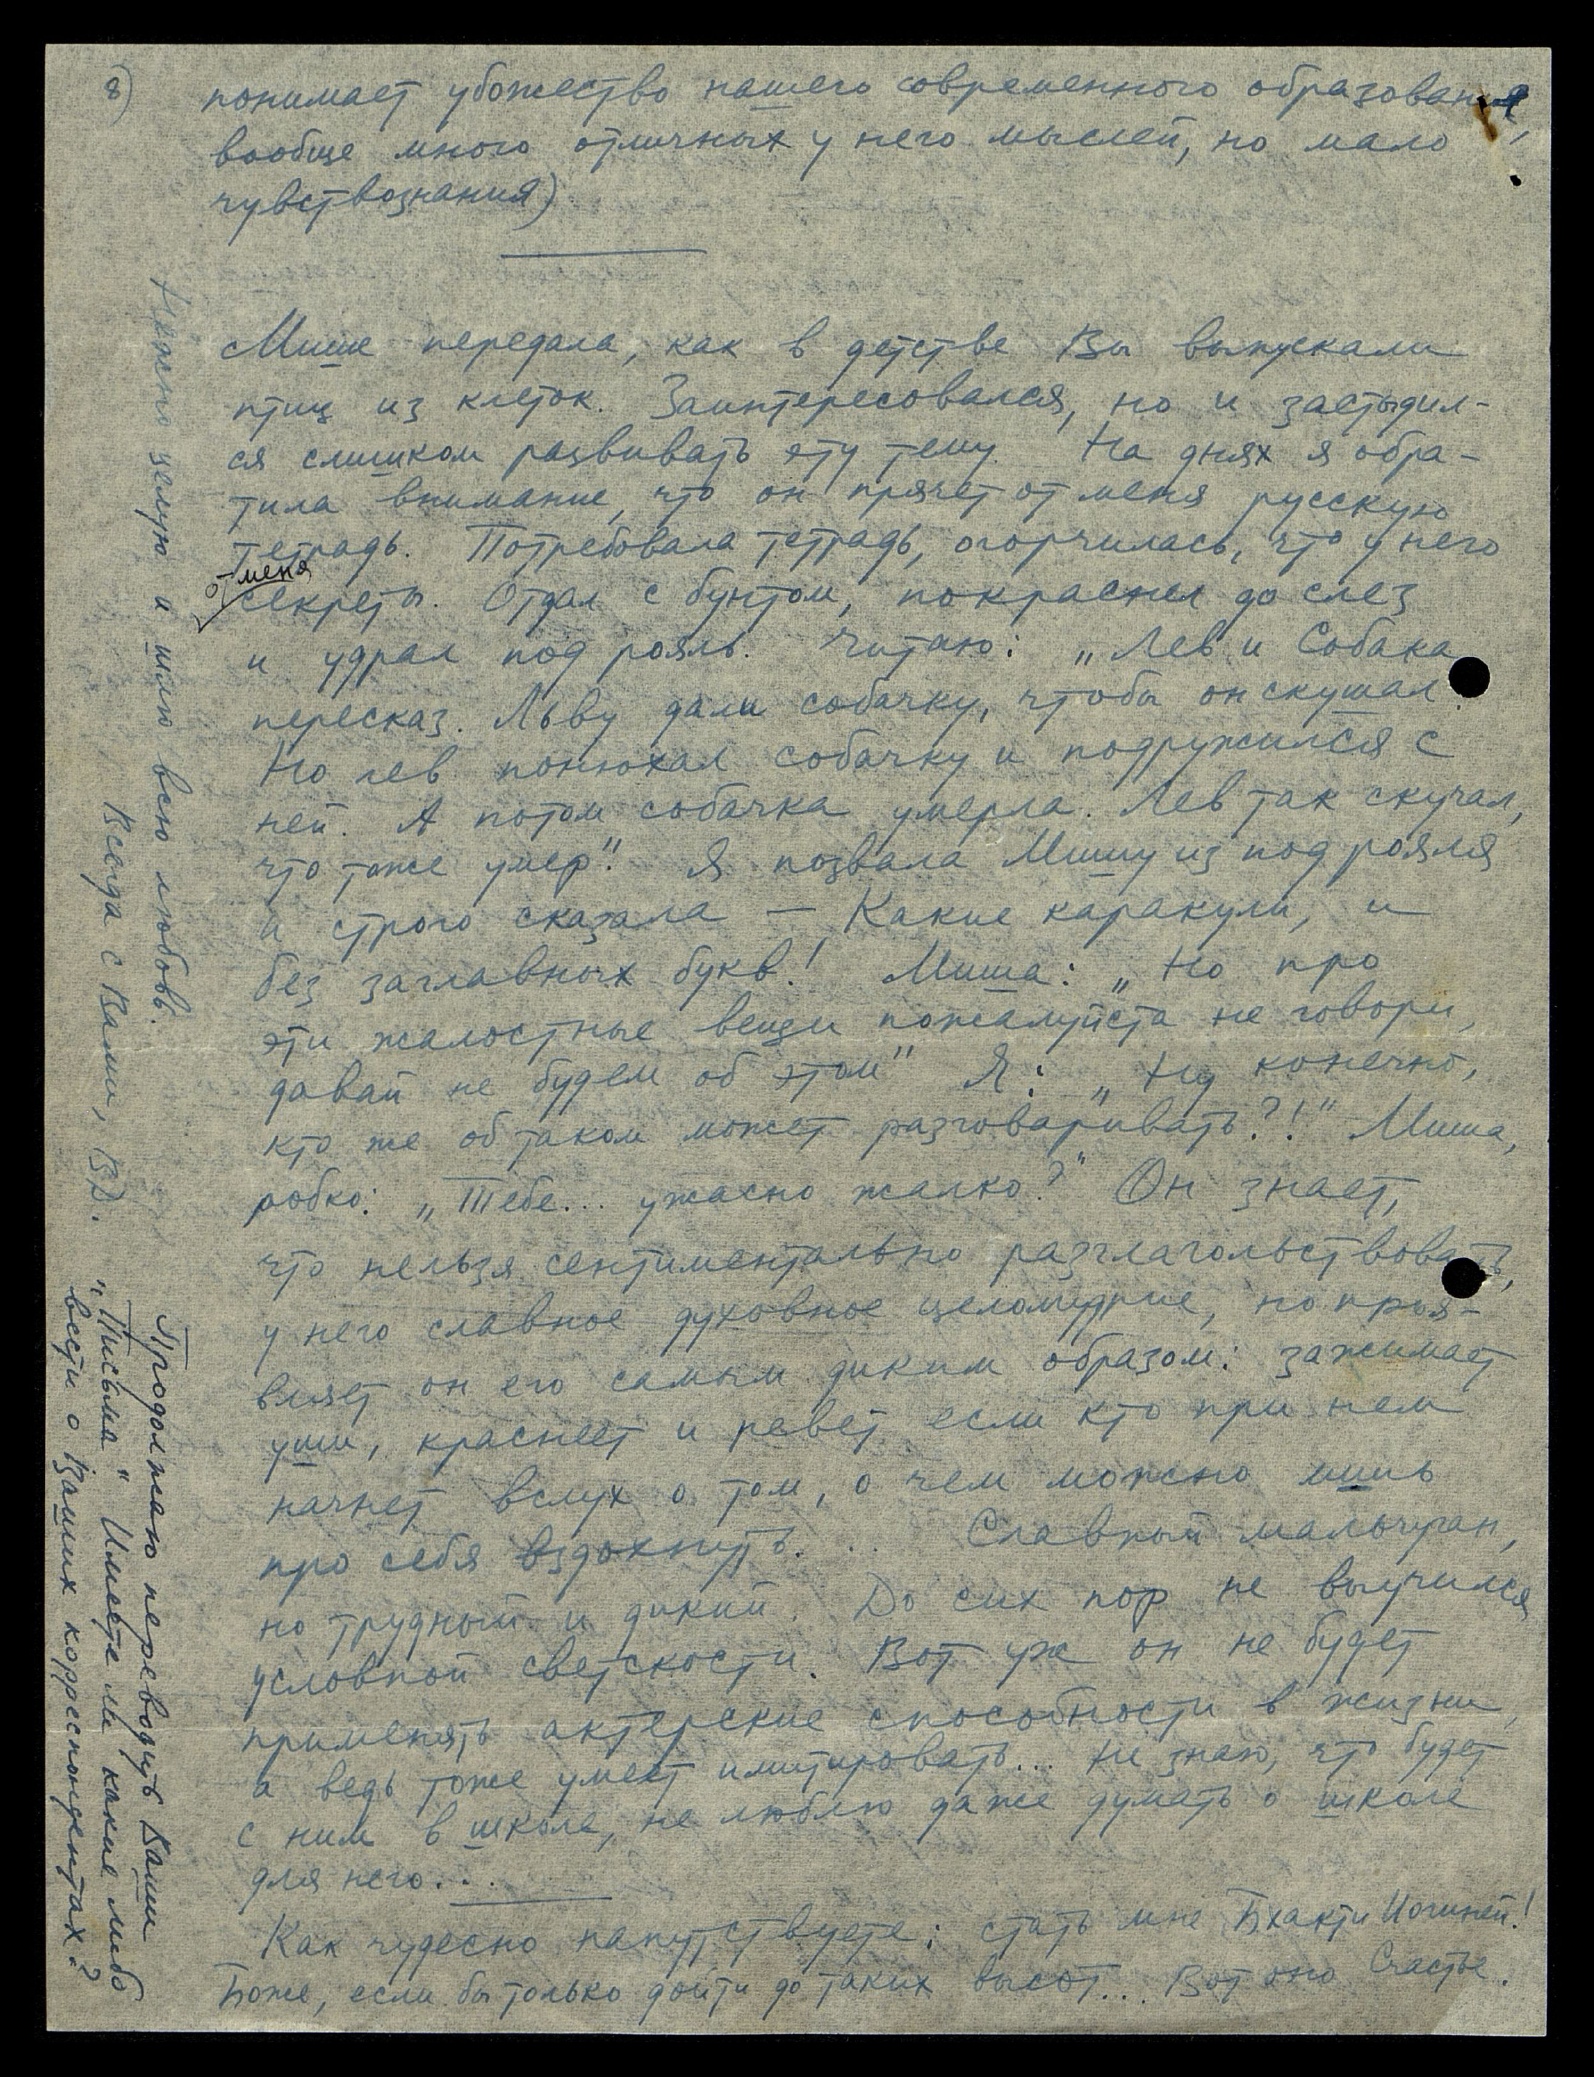 8)
понимает убожество нашего современного образования,
вообще много отличных у него мыслей, но мало
чувствознания)
Мише передала, как в детстве Вы выпускали
птиц из клеток. Заинтересовался, но и застыдил-
ся слишком развивать эту тему. На днях я обра-
тила внимание, что он прячет от меня русскую
тетрадь. Потребовала тетрадь, огорчилась, что у него
от меня
секреты. Отдал с бунтом, покраснел до слез
и удрал под рояль. Читаю: „Лев и Собака
пересказ. Льву дали собачку, чтобы он скушал.
Но лев понюхал собачку и подружился с
ней. А потом собачка умерла. Лев так скучал,
что тоже умер". Я позвала Мишу из под рояля
и строго сказала — Какие каракули, и
без заглавных букв! Миша: „Но про
эти жалостные вещи пожалуйста не говори,
давай не будем об этом" Я: „Ну конечно,
кто же об таком может разговаривать?!" Миша,
робко: „Тебе... ужасно жалко?" Он знает,
что нельзя сентиментально разглагольствовать,
у него славное духовное целомудрие, но прояв-
вляет он его самым диким образом: зажимает
уши, краснеет и ревет если кто при нем
начнет вслух о том, о чем можно лишь
про себя вздохнуть... Славный мальчуган,
но трудный и дикий. До сих пор не выучился
условной светскости. Вот уж он не будет
применять актерские способности в жизни,
а ведь тоже умеет имитировать... Не знаю, что будет
с ним в школе, не люблю даже думать о школе
для него...
Как чудесно напутствуете: стать мне Бхакти Иогиней!
Боже, если бы только дойти до таких высот... Вот оно Счастье.
Продолжаю переводить Ваши
„Письма" Имеете ли какие либо
вести о Ваших корреспондентах?
Нежно целую и шлю всю любовь.
Всегда с Вами,